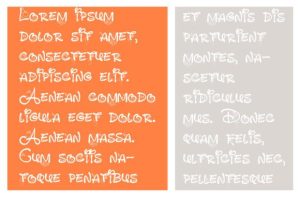 Lorem ipsum
dolor sit amet,
consectetuer
adipiscing elit.
Aenean commodo
ligula eget dolor.
Aenean massa.
Cum sociis na-
toque penatibus
et magnis dis
parturient
montes, na-
scetur
ridiculus
mus. Donec
quam felis,
ultricies nec,
pellentesque